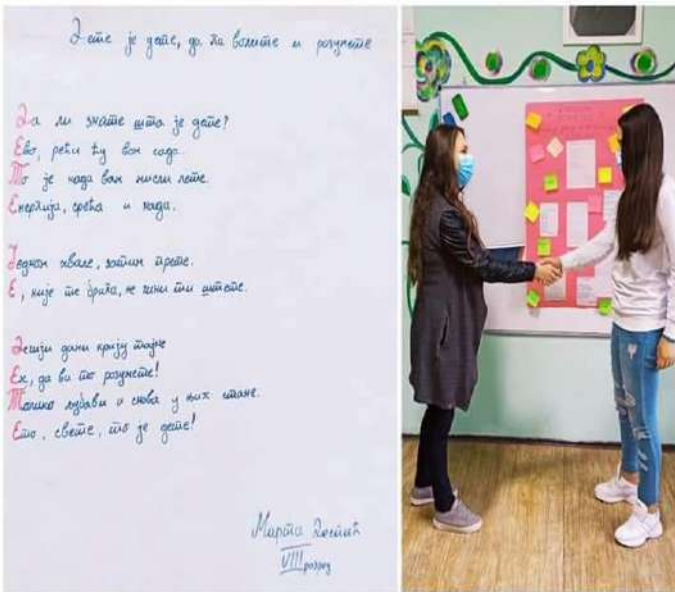 Дете је дете, да га волите и разумете
Да ли знате шта је дете?
Ево, рећи ћу вам сада.
То је када вам мисли лете.
Енергија, срећа и нада.
Једном хвале, затим прете.
Е, није те брига, не чини ти штете.
Дечији дани крију тајне
Ех, да ви то разумете!
Толико љубави и снова у њих стане.
Ето, свете, то је дете!
Марта
VIII разред